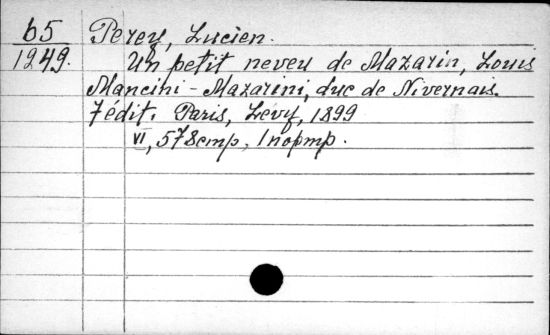 65 Perey, Lucien.
1249. Un petit neveu de Mazarin, Louis
Mancini - Mazarini, duc de Nivernais.
7 édit. Paris, Levy, 1899
VI, 578 стр, 1 портр.